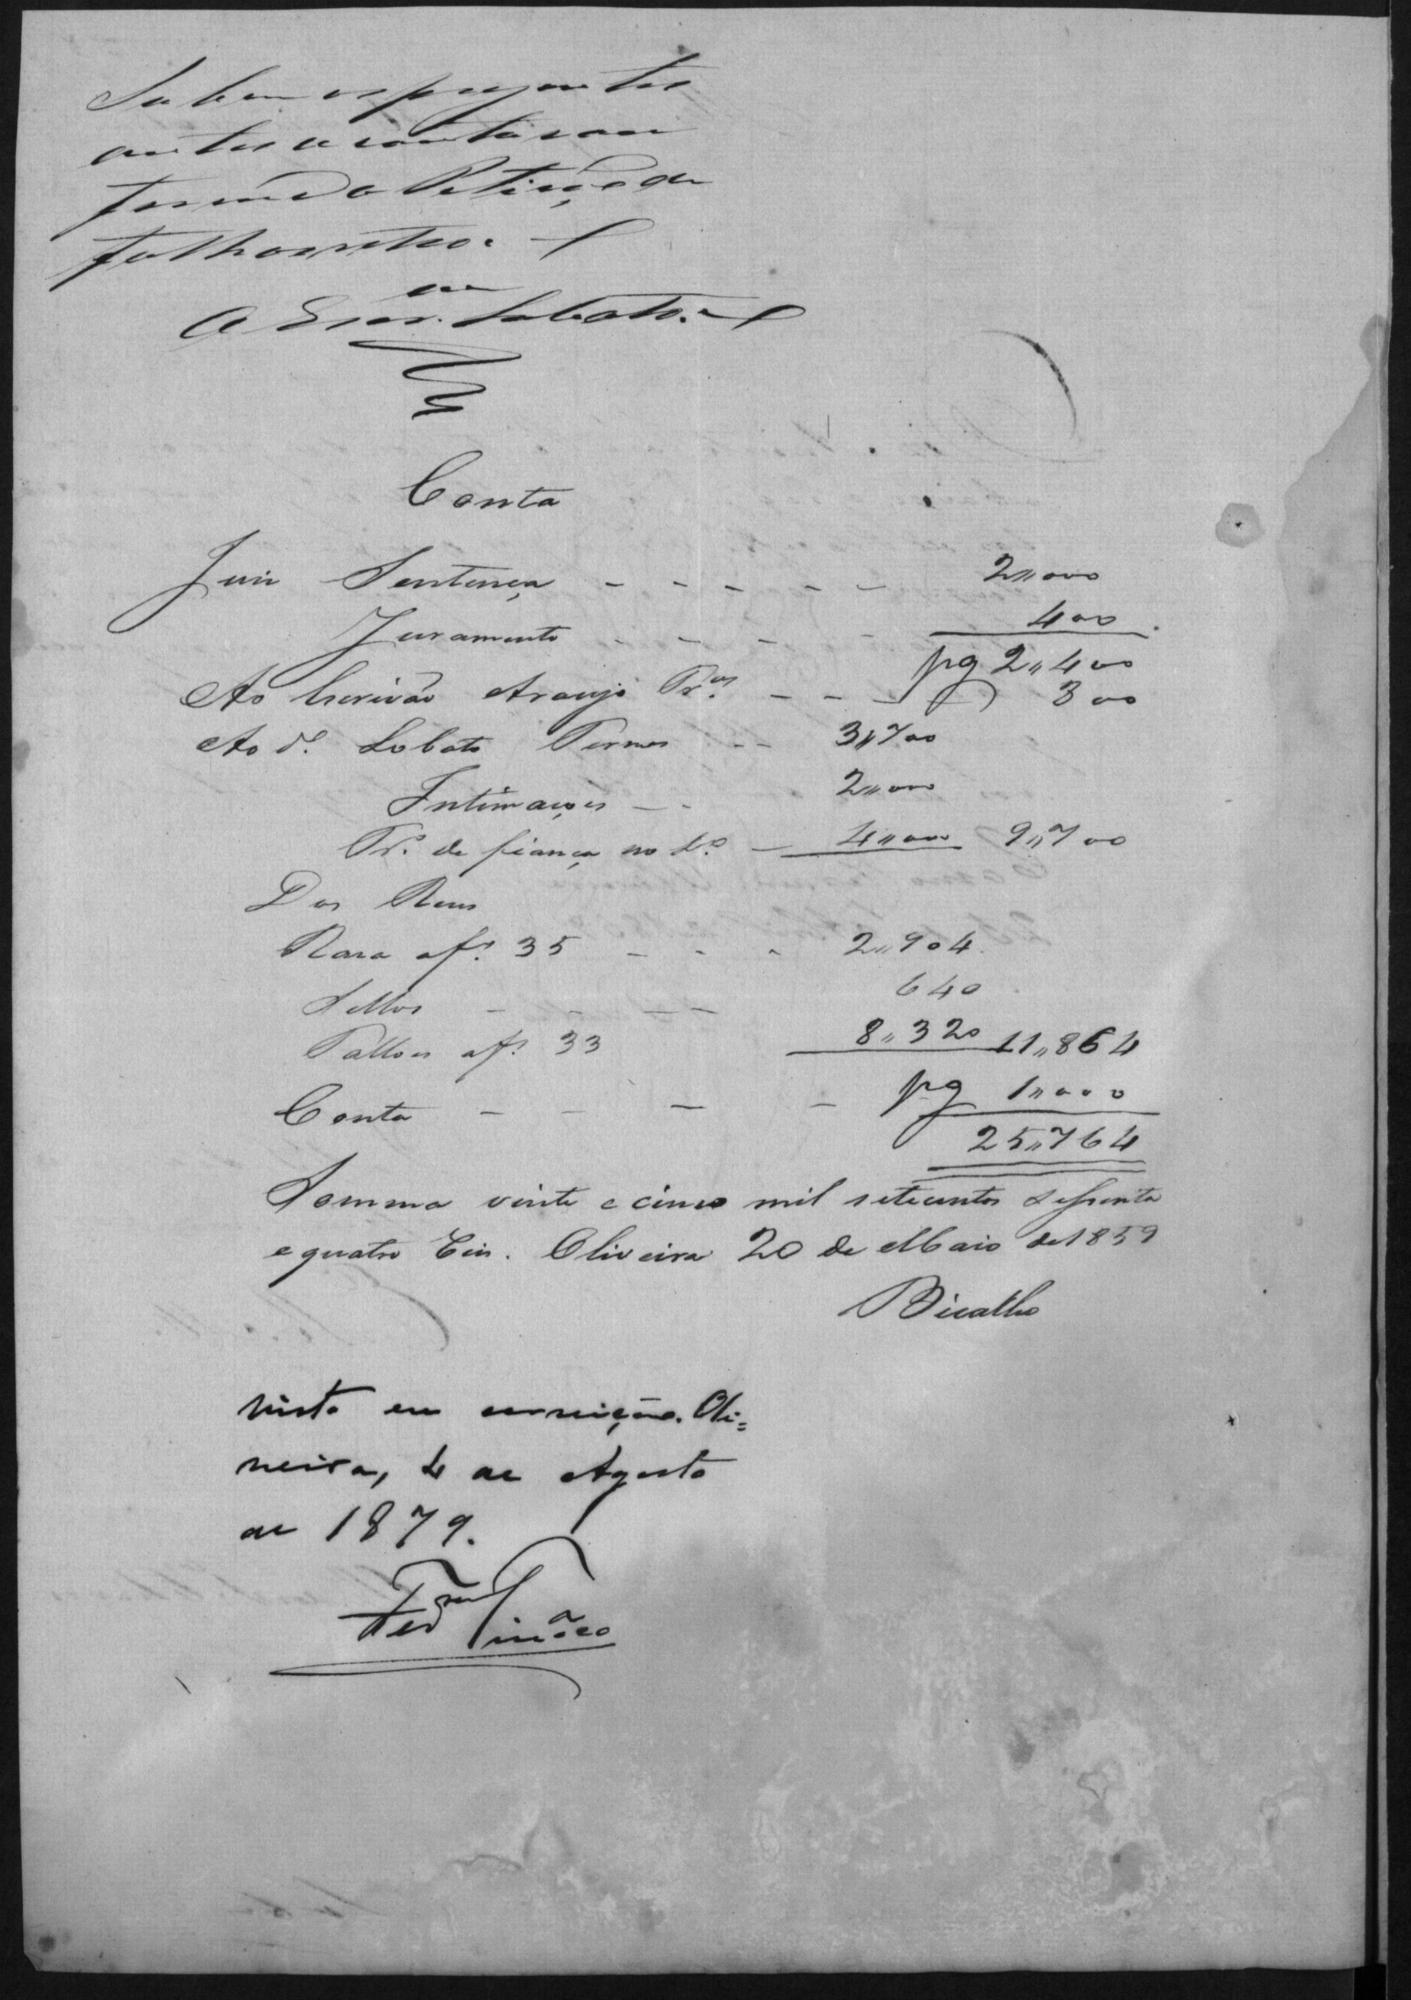 autos a conta na
forma da Petição de
folha retro.
O Escr.am Lobato.
Conta
Juiz Sentença - - - - - - 2"000
Juramento - - - - 400
pg 2"400
Ao Escrivão Araujo Pr.as - - - 300
Ao d.o Lobato Termos - - 3"700
Intimações - - 2"000
Tr.o de fiança no L.o - 4"000 9"700
Dos Reus
Raza af. 35 - - - 2"904
Sellos - - - - 640
af. 33 8"320 11"864
Conta - - - - pg 1"000
25"764
Somma vinte e cinco mil setecentos e sessenta
e quatro reis. Oliveira 20 de Maio de 1859
Bicalho
Visto em correição. Oli=
veira, 4 de Agosto
de 1879.
Tinôco